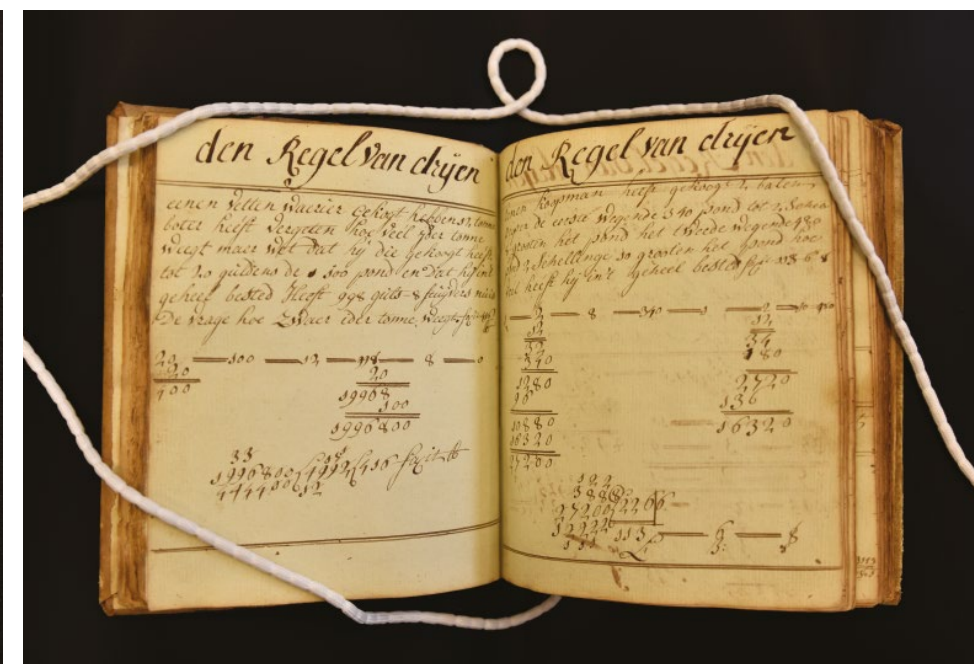 den Regel van drijen
einen vetten waerier gekogt hebbende 12 tonne
boter heeft vergeten hoe veel ider tonne
weegt maer wet dat hij die gekogt heeft
tot 20 guldens de 100 pond en dat hij int
geheel besteed Heeft 998 guls 8 stuijvers
De vrage hoe zwaer ider tonne weegt
20 — 100 — 12 — 998 — 8 — 0
20
400
20
19968
100
1996800
33
1996800 4992 416 facit lb
444400 12
den Regel van drijen
einen koopman heeft gekogt 2 balen
peper de eerste wegende 340 pond tot 2 schel
8 grooten het pond het tweede wegende 480
pond 2 schellinge 10 grooten het pond hoe
veel heeft hij in't geheel besteed 113 - 6 - 8
2 — 8 — 340 — 2 — 10
12
32
340
1280
96
10880
16320
27200
12
34
480
2720
136
16320
122
388
27200 2266
12222 113 — 6 — 8